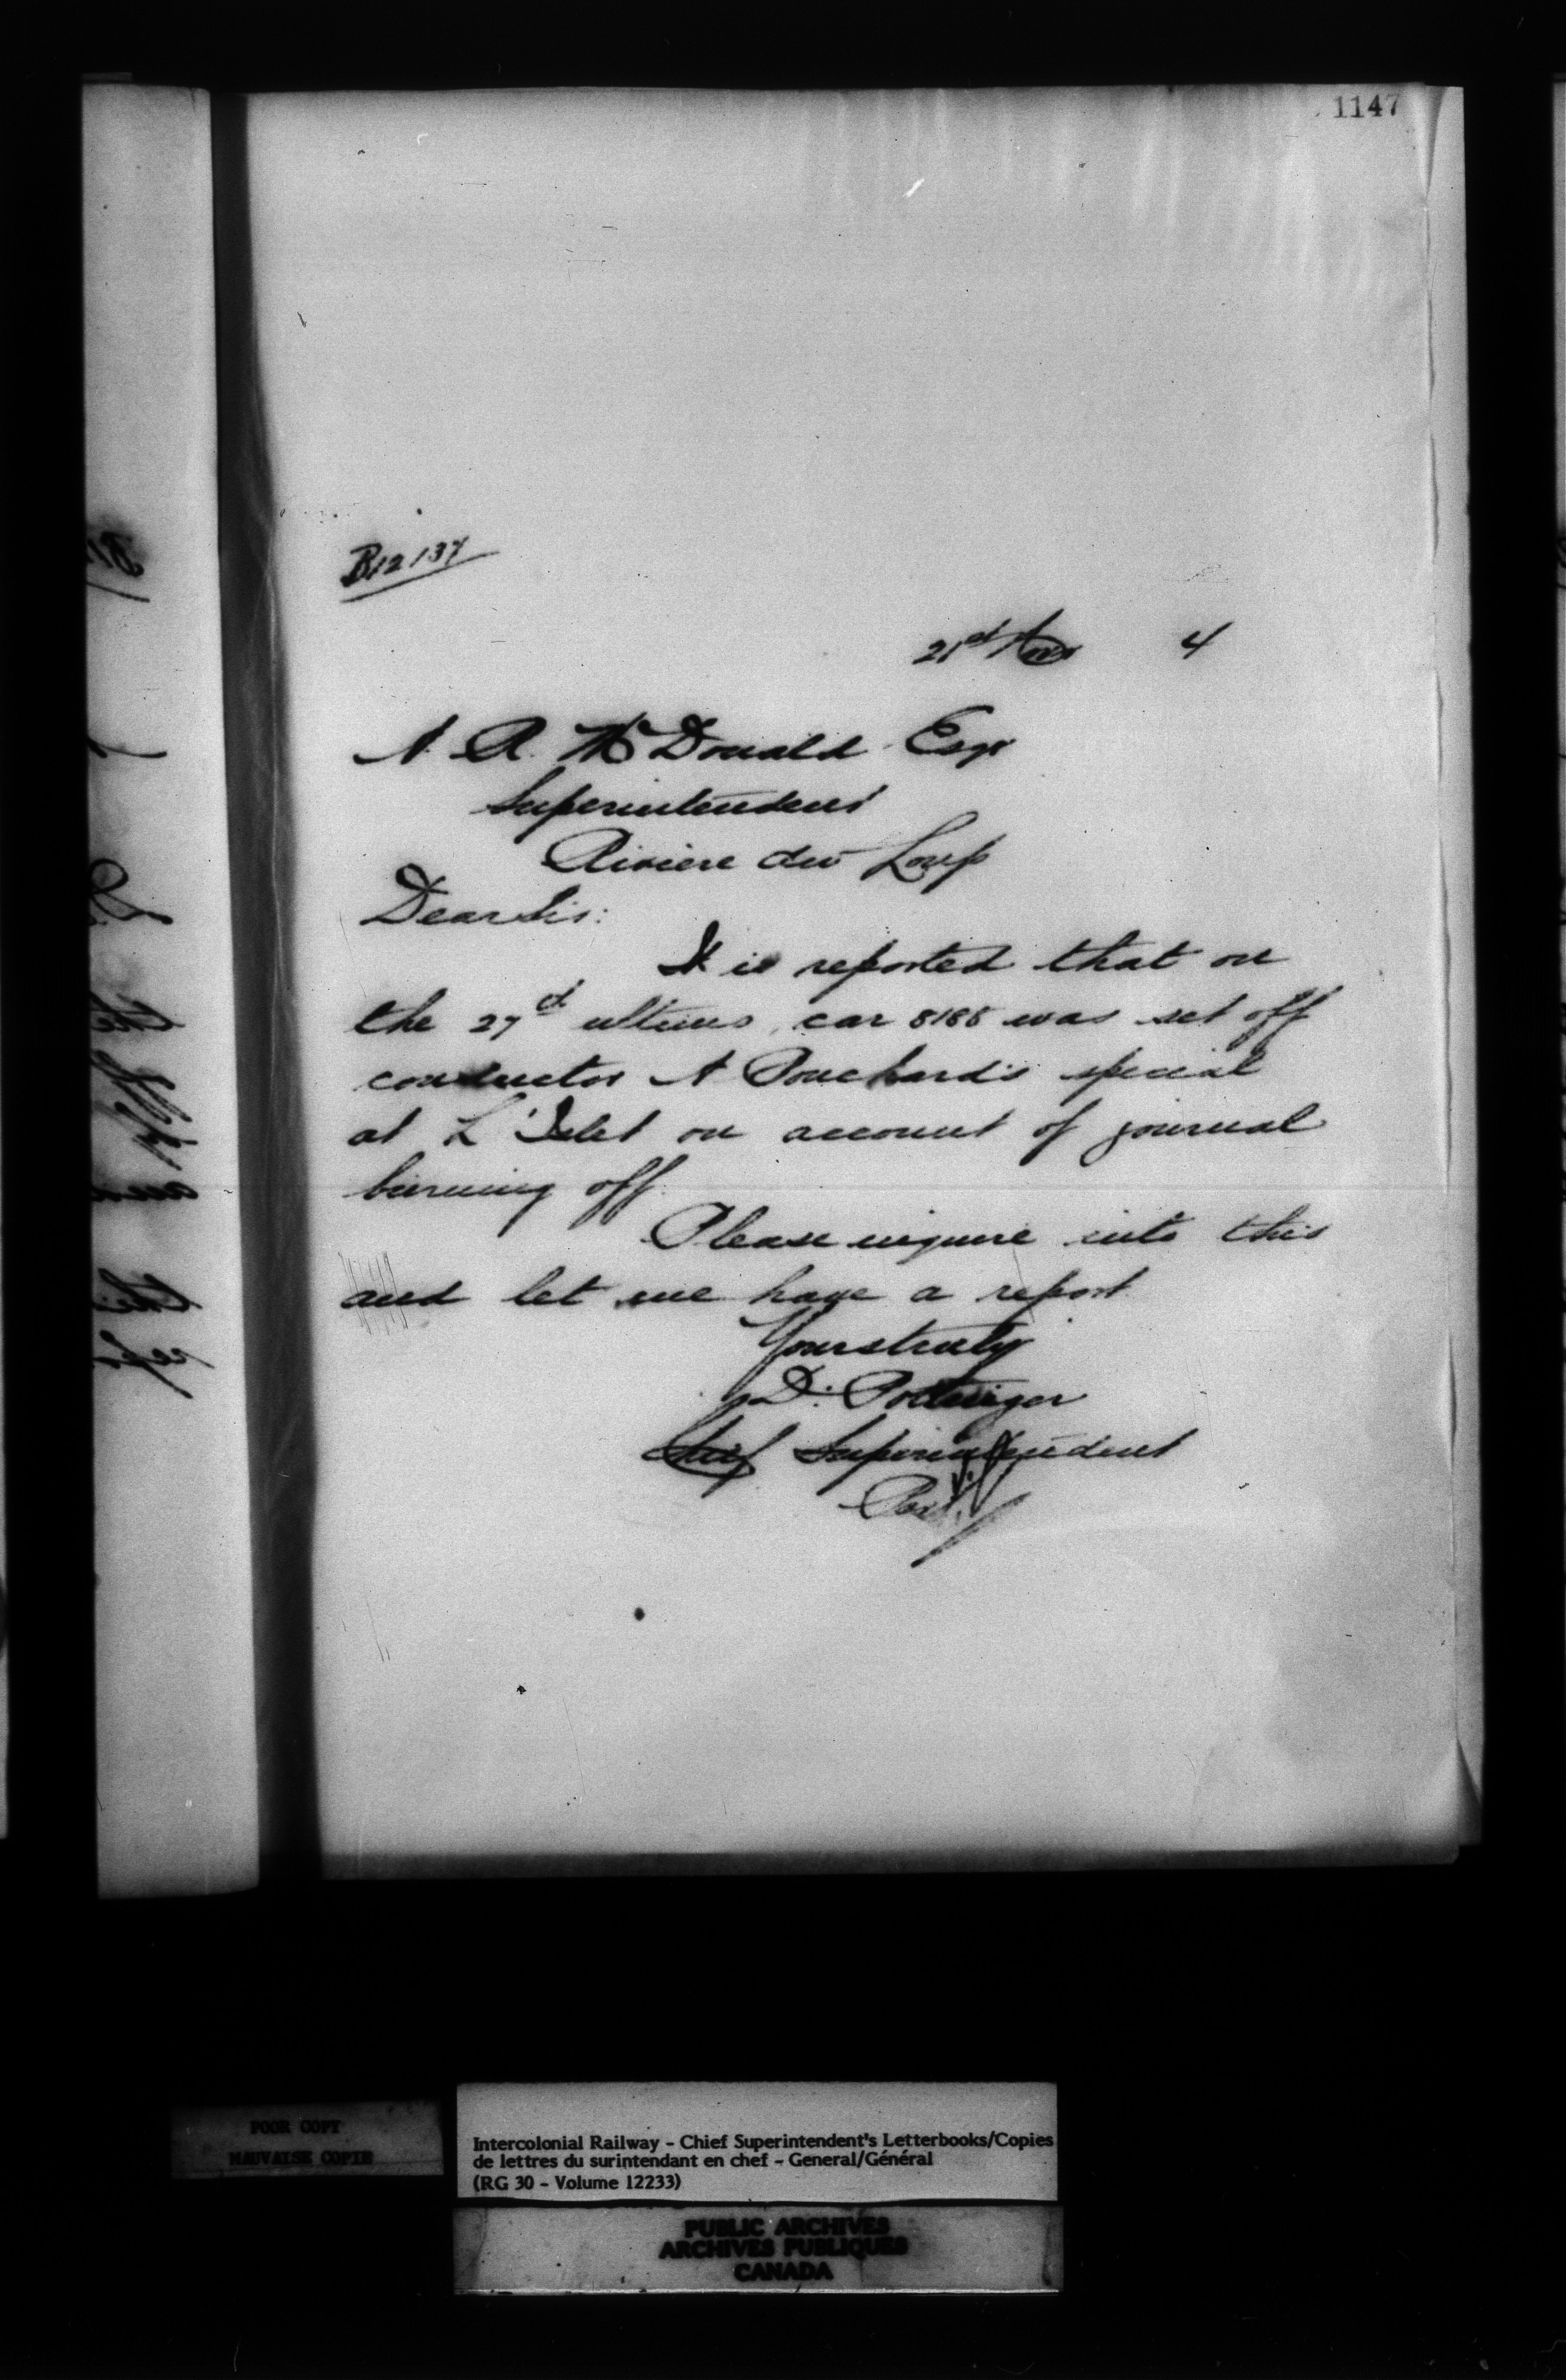 1147
B12137
21st Nov 4
A. R. McDonald Esqr
Superintendent
Riviere du Loup
Dear Sir:
It is reported that on
the 27th ultimo, car 8188 was set off
conductor A Bouchard's special
at L'Islet on account of journal
burning off.
Please inquire into this
and let me have a report
Yours truly
D. Pottinger
Chief Superintendent
POOR COPY
MAUVAISE COPIE
Intercolonial Railway - Chief Superintendent's Letterbooks/Copies
de lettres du surintendant en chef - General/Général
(RG 30 - Volume 12233)
PUBLIC ARCHIVES
ARCHIVES PUBLIQUES
CANADA